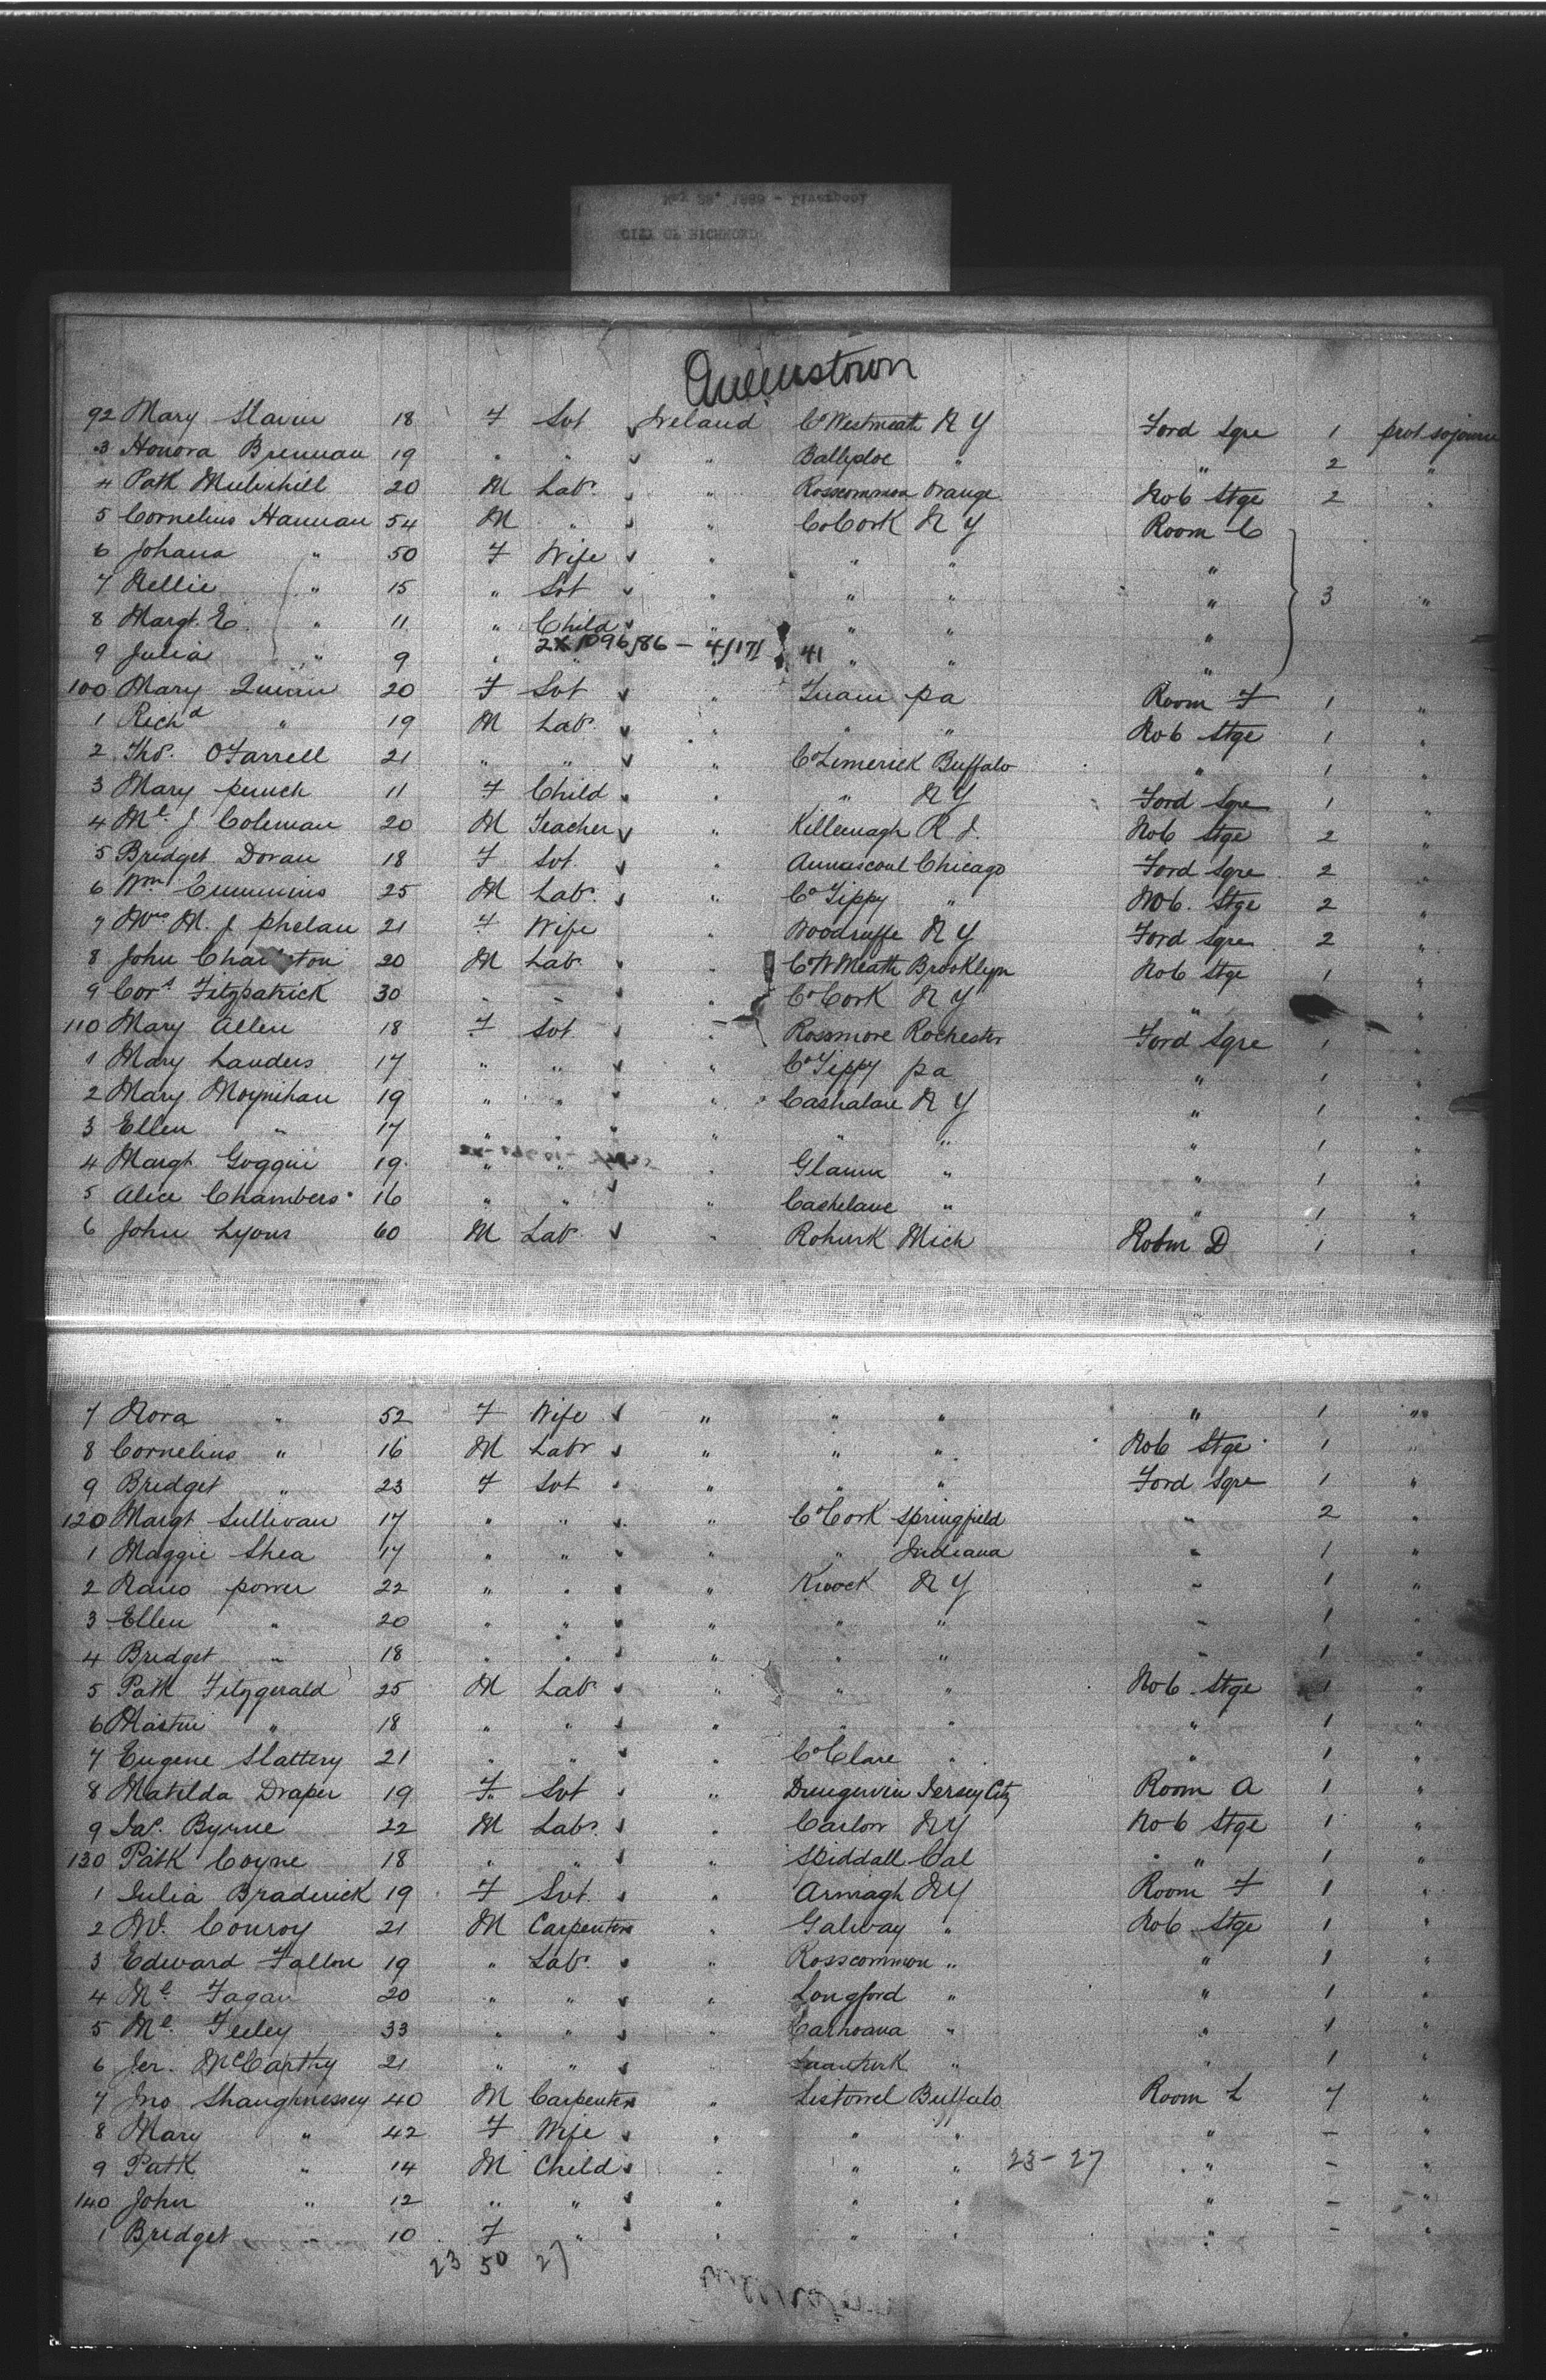 May 28, 1888 - Liverpool
CITY OF RICHMOND
Queenstown
92 Mary Slavin 18 F Svt Ireland Co Westmeath N Y Ford Sgre 1 prot sojourn
3 Honora Brennan 19 " " " " " 2 "
4 Patk 20 M Labr " Rosscommon Orange No 6 Stge 2 "
5 Cornelius Hannan 54 M " " Co Cork N Y Room C
6 Johana " 50 F Wife " " " "
7 Nellie " 15 " Svt " " " " 3 "
8 Margt. E. " 11 " Child " " " "
2X1096/86 - 4/17/ 41
9 Julia " 9 " " " "
100 Mary Quinn 20 F Svt " Tuam pa Room F 1 "
1 Richd " 19 M Labr " " " No 6 Stge 1 "
2 Thos. O'Farrell 21 " " " Co Limerick Buffalo " 1 "
3 Mary punch 11 F Child " " N Y Ford Sgre 1 "
4 Ml. J Coleman 20 M Teacher " R I. No 6 Stge 2 "
5 Bridget Doran 18 F Svt " Annascoul Chicago Ford Sgre 2 "
6 Wm Cummins 25 M Labr " Co Tippy " No 6. Stge 2 "
7 Mrs M. J phelan 21 F Wife " Woodruffe N Y Ford Sgre 2 "
8 John 20 M Labr " Co W Meath Brooklyn No 6 Stge 1 "
9 Cors Fitzpatrick 30 " " " Co Cork N Y " "
110 Mary Allen 18 F Svt " Rossmore Rochester Ford Sgre 1 "
1 Mary Landers 17 " " " Co Tippy pa " 1 "
2 Mary Moynihan 19 " " " Cashalane N Y " 1 "
3 Ellen " 17 " " " " " " 1 "
4 Margt Goggin 19 " " " " " 1 "
5 Alice Chambers 16 " " " Cashelane " " 1 "
6 John Lyons 60 M Labr " Mich Room D 1 "
7 Nora " 52 F Wife " " " " 1 "
8 Cornelius " 16 M Labr " " " No 6 Stge 1 "
9 Bridget " 23 F Svt " " " Ford Sgre 1 "
120 Margt Sullivan 17 " " " Co Cork Springfield " 2 "
1 Maggie Shea 17 " " " " Indiana " 1 "
2 Nano power 22 " " " Knock N Y " 1 "
3 Ellen " 20 " " " " " " 1 "
4 Bridget " 18 " " " " " " 1 "
5 Patk Fitzgerald 25 M Labr " " " No 6 Stge 1 "
6 Martin " 18 " " " " " " 1 "
7 Eugene Slattery 21 " " " Co Clare " " 1 "
8 Matilda Draper 19 F Svt " Dungervin Jersey City Room A 1 "
9 Jas. Byrne 22 M Labr " Carlow N Y No 6 Stge 1 "
130 Patk Coyne 18 " " " Skiddall Cal " 1 "
1 Julia Braderick 19 F Svt " Armagh N Y Room F 1 "
2 Conroy 21 M Carpenter " Galway " No 6 Stge 1 "
3 Edward Fallon 19 " Labr " Rosscommon " " 1 "
4 Ml. Fagan 20 " " " Longford " " 1 "
5 Ml. Feeley 33 " " " " " 1 "
6 Jer. McCarthy 21 " " " " " 1 "
7 Jno Shaughnessey 40 M Carpenter " Listowel Buffalo Room L 7 "
8 Mary " 42 F Wife " " " " - "
9 Patk " 14 M Child " " " 23-27 " - "
140 John " 12 " " " " " " - "
1 Bridget " 10 F " " " " " - "
23 50 27